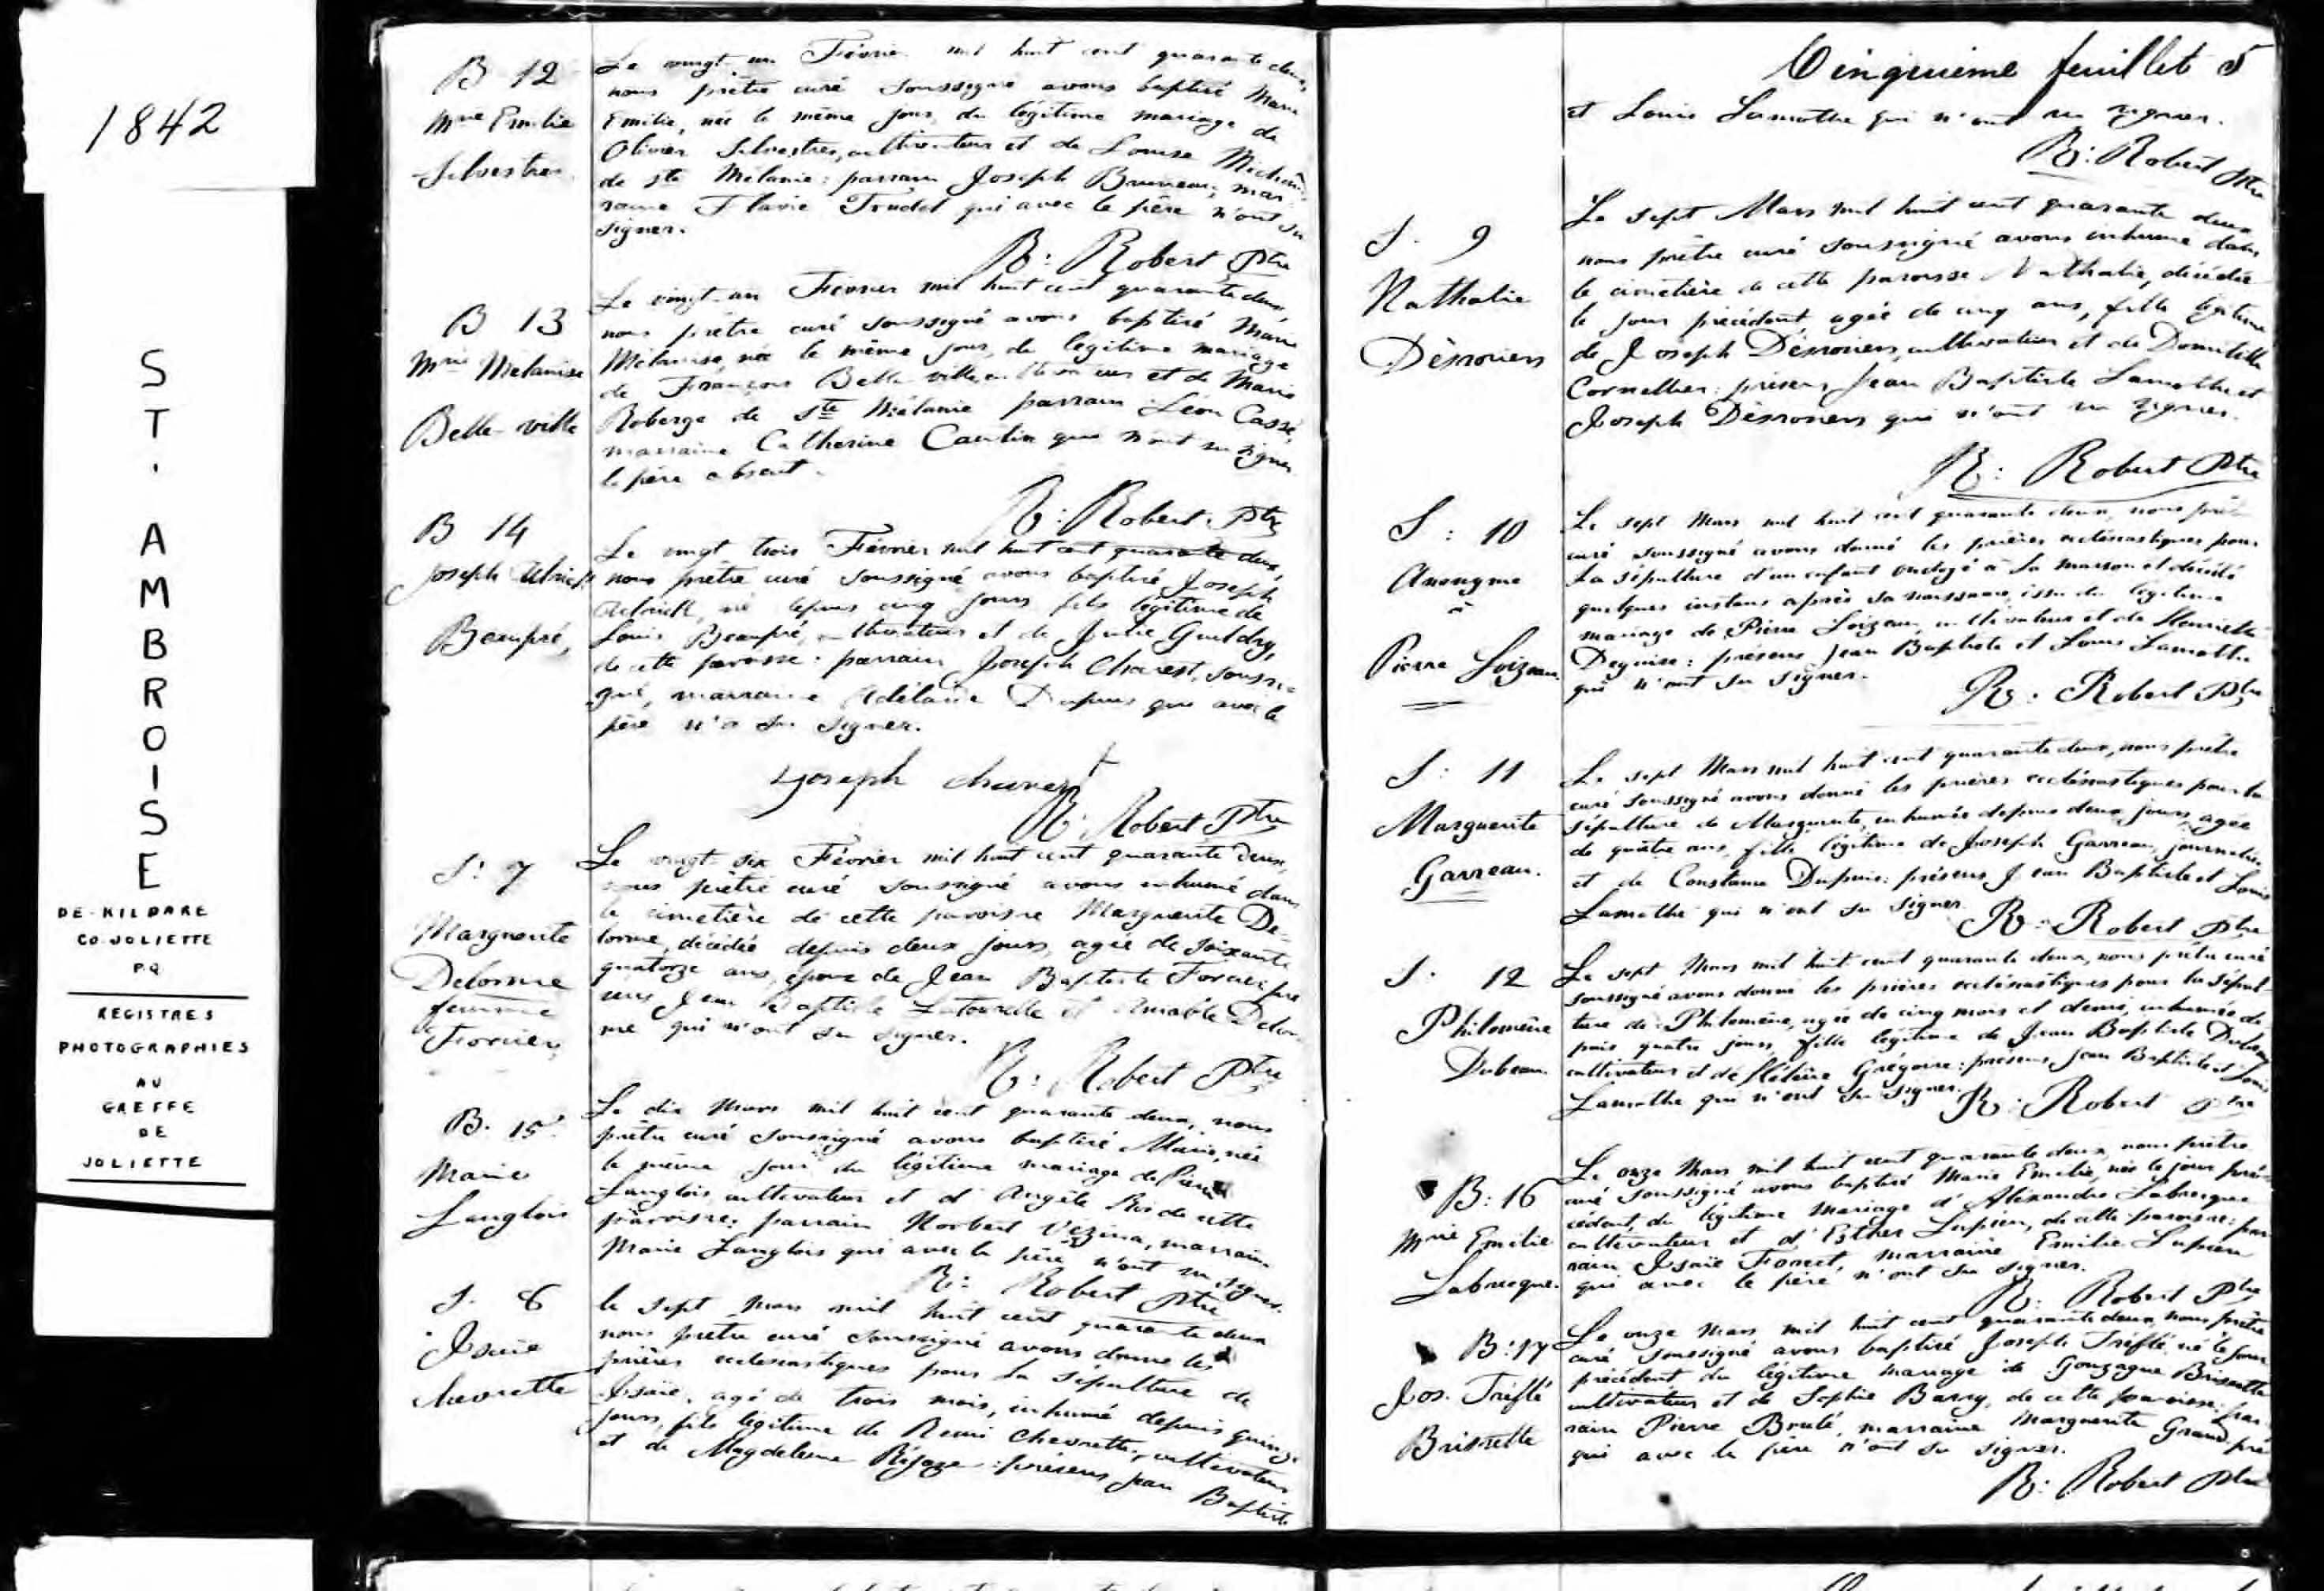 1842
ST. AMBROISE
DE KILDARE
CO. JOLIETTE
P.Q.
REGISTRES
PHOTOGRAPHIES
AU
GREFFE
DE
JOLIETTE
B 12
Mrie Emilie
Silvestres
Le vingt-un Février mil huit cent quarante deux,
nous prêtre curé soussigné avons baptisé Marie
Emilie, née le même jour, du légitime mariage de
Olivier Silvestres, cultivateur et de Louise
de Ste Mélanie: parrain Joseph Bruneau, mar-
raine Flavie Trudel qui avec le père n'ont su
signer.
R: Robert Ptre
B 13
Mrie Mélanise
Belle-ville
Le vingt-un Février mil huit cent quarante deux,
nous prêtre curé soussigné avons baptisé Marie
Mélanise, née le même jour, du légitime mariage
de François Belle-ville, cultivateur et de Marie
Roberge de Ste Mélanie parrain Léon Cassé,
marraine Catherine Cantin qui n'ont su signer
le père absent.
R: Robert Ptre
B 14
Joseph Ulrick
Beaupré,
Le vingt trois Février mil huit cent quarante deux,
nous prêtre curé soussigné avons baptisé Joseph
Ulrick, né depuis cinq jours fils légitime de
Louis Beaupré, cultivateur et de Julie Gueldry,
de cette paroisse: parrain Joseph Charest, soussi-
gné, marraine Adélaïde Dupuis qui avec le
père n'a su signer.
Joseph charest
R: Robert Ptre
S: 7
Marguerite
Delorme
femme
Forcier
Le vingt-six Février mil huit cent quarante deux,
nous prêtre curé soussigné avons inhumé dans
le cimetière de cette paroisse Marguerite De-
lorme, décédée depuis deux jours, agée de soixante
quatorze ans, épouse de Jean Baptiste Forcier pré-
sens Jean Baptiste Latourelle et Amable Delor-
me qui n'ont su signer.
R: Robert Ptre
B. 15
Marie
Langlois
Le dix Mars mil huit cent quarante deux, nous
prêtre curé soussigné avons baptisé Marie, née
le même jour du légitime mariage de Pierre
Langlois cultivateur et d'Angèle Roi de cette
paroisse: parrain Norbert Vézina, marraine
Marie Langlois qui avec le père n'ont su signer.
R: Robert Ptre
S. 8
Isaïe
Chevrette
le sept Mars mil huit cent quarante deux
nous prêtre curé soussigné avons donné les
prières ecclésiastiques pour la sépulture de
Isaïe, agé de trois mois, inhumé depuis quinze
jours, fils légitime de Remi Chevrette, cultivateur
et de Magdeleine: présens Jean Baptiste
Cinquième feuillet 5
et Louis Lamothe qui n'ont su signer.
R: Robert Ptre
S. 9
Nathalie
Désrosiers
Le sept Mars mil huit cent quarante deux
nous prêtre curé soussigné avons inhumé dans
le cimetière de cette paroisse Nathalie, décédée
le jour précédent agée de cinq ans, fille légitime
de Joseph Désrosiers, cultivateur et de Domitille
Cornellier: présens Jean Baptiste Lamothe et
Joseph Désrosiers qui n'ont su signer.
R: Robert Ptre
S: 10
Anonyme
à
Pierre Loizeau
Le sept Mars mil huit cent quarante deux, nous prêtre
curé soussigné avons donné les prières ecclésiastiques pour
la sépulture d'un enfant ondoyé à la maison et décédé
quelques instans après sa naissance, issu du légitime
mariage de Pierre Loizeau, cultivateur et de Henriette
Deguise: présens Jean Baptiste et Louis Lamothe
qui n'ont su signer.
R: Robert Ptre
S: 11
Marguerite
Garreau.
Le sept Mars mil huit cent quarante deux, nous prêtre
curé soussigné avons donné les prières ecclésiastiques pour la
sépulture de Marguerite, inhumée depuis deux jours, agée
de quatre ans, fille légitime de Joseph Garreau, journalier
et de Constance Dupuis: présens Jean Baptiste et Louis
Lamothe qui n'ont su signer.
R: Robert Ptre
S: 12
Philomène
Dubeau
Le sept Mars mil huit cent quarante deux, nous prêtre curé
soussigné avons donné les prières ecclésiastiques pour la sépul-
ture de Philomène, agée de cinq mois et demi, inhumée de-
puis quatre jours, fille légitime de Jean Baptiste Dubeau
cultivateur et de Hélène Grégoire: présens Jean Baptiste et Louis
Lamothe qui n'ont su signer.
R: Robert Ptre
B: 16
Mrie Emilie
Labrecque.
Le onze Mars mil huit cent quarante deux, nous prêtre
curé soussigné avons baptisé Marie Emilie, née le jour pré-
cédent, du légitime mariage d'Alexandre Labrecque
cultivateur et d'Esther Lupien, de cette paroisse: par-
rain Isaïe Forest, marraine Emilie Lupien
qui avec le père n'ont su signer.
R: Robert Ptre
B: 17
Jos. Trefflé
Brissette
Le onze Mars mil huit cent quarante deux, nous prêtre
curé soussigné avons baptisé Joseph Trefflé né le jour
précédent du légitime mariage de Gonzague Brissette
cultivateur et de Sophie Barry, de cette paroisse: par-
rain Pierre Brulé, marraine Marguerite Grand-pré
qui avec le père n'ont su signer.
R: Robert Ptre